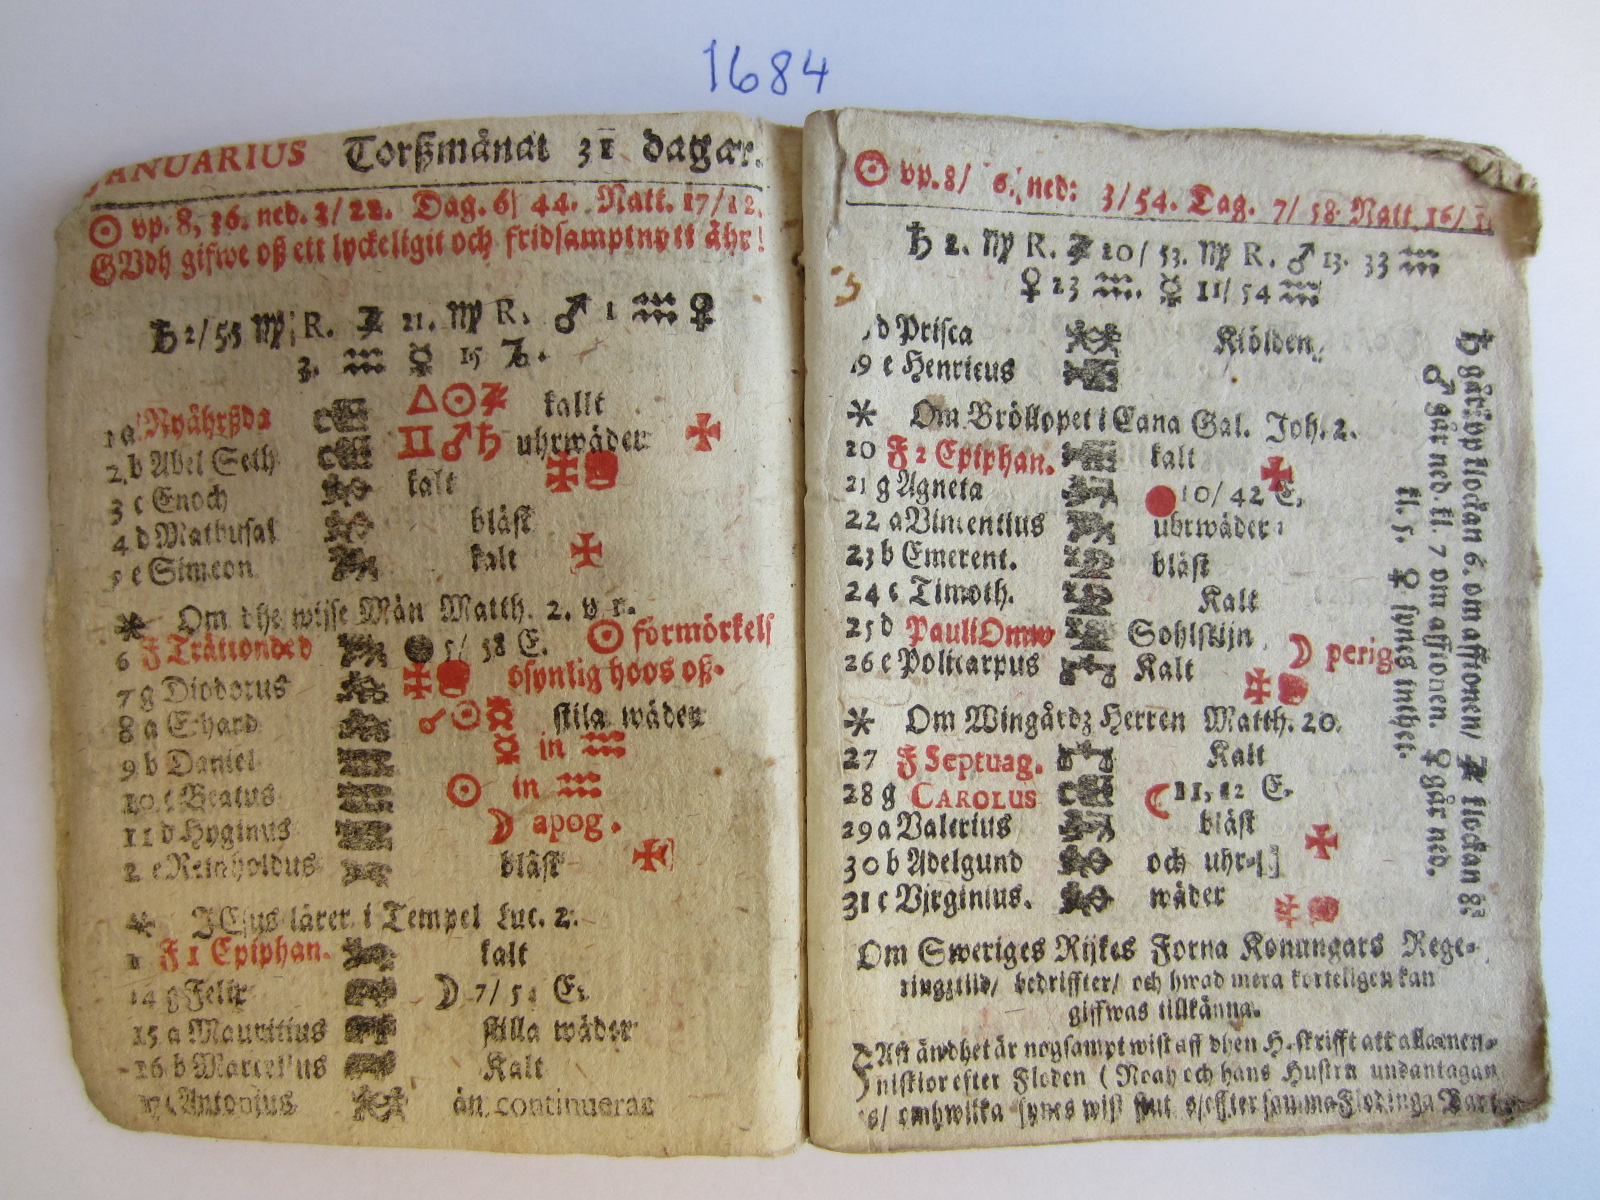 1684
JANUARIUS Torßmånat 31 dagar.
☉ vp. 8, 36. ned. 3/22. Dag. 6/ 44. Natt. 17/12.
GVdh gifwe oß ett lyckeligit och fridsampt nytt åhr!
♄ 2/55 ♍ R. ♃ 21. ♍ R. ♂ 1 ♒ ♀
3. ♒ ☿ 15 ♑.
1 a Nyåhrßda △☉♃ kallt
2 b Abel Seth ♊♂♄ uhrwäder ✠
3 c Enoch kalt ✠
4 d Mathusal blåst
5 e Simeon kalt ✠
* Om dhe wijse Män Matth. 2. v 1.
6 F Trättonded ● 5/ 58 E. ☉ förmörkels
7 g Diodorus ✠ osynlig hoos oß.
8 a Erhard ☌☉☿ stila wäder
9 b Daniel ☿ in ♒
10 c Beatus ☉ in ♒
11 d Hyginus ☽ apog.
2 e Reinholdus blåst ✠
* JEsus lärer i Tempel Luc. 2.
F 1 Epiphan. kalt
14 g Felix ☽ 7/ E.
15 a Mauritius stilla wäder
16 b Marcellus Kalt
Antonius än continuerar
☉ vp. 8/ 6. ned: 3/54. Dag. 7/ 58. Natt. 16/
♄ 2. ♍ R. ♃ 20/ 53. ♍ R. ♂ 13. 33 ♒
♀ 23 ♒. ☿ 11/ 54 ♒
d Prisca Kiölden,
19 e Henricus
* Om Bröllopet i Cana Gal. Joh. 2.
20 F 2 Epiphan. kalt ✠
21 g Agneta ● 10/ 42 E.
22 a Vincentius uhrwäder
23 b Emerent. blåst
24 c Timoth. Kalt
25 d Pauli Omw Sohlskijn ☽ perig
26 e Policarpus Kalt ✠
* Om Wingårdz Herren Matth. 20.
27 F Septuag. Kalt
28 g CAROLUS ☾ 11, 12 E.
29 a Valerius blåst ✠
30 b Adelgund och uhr-
31 c Virginius. wäder ✠
♄ går vp klockan 6. om afftonen/ ♃ klockan 8.
♂ går ned. kl. 7 om afftonen. ♀ går ned.
kl. 5. ☿ synes inthet.
Om Sweriges Rijkes Forna Konungars Rege-
ringztiid/ bedriffter/ och hwad mera korteligen kan
giffwas tillkänna.
Aft ändhet är nogsampt wist aff dhen H. skrifft att alla men-
niskior efter Floden ( Noah och hans Hustru undantagan
s/ omhwilka synes wist